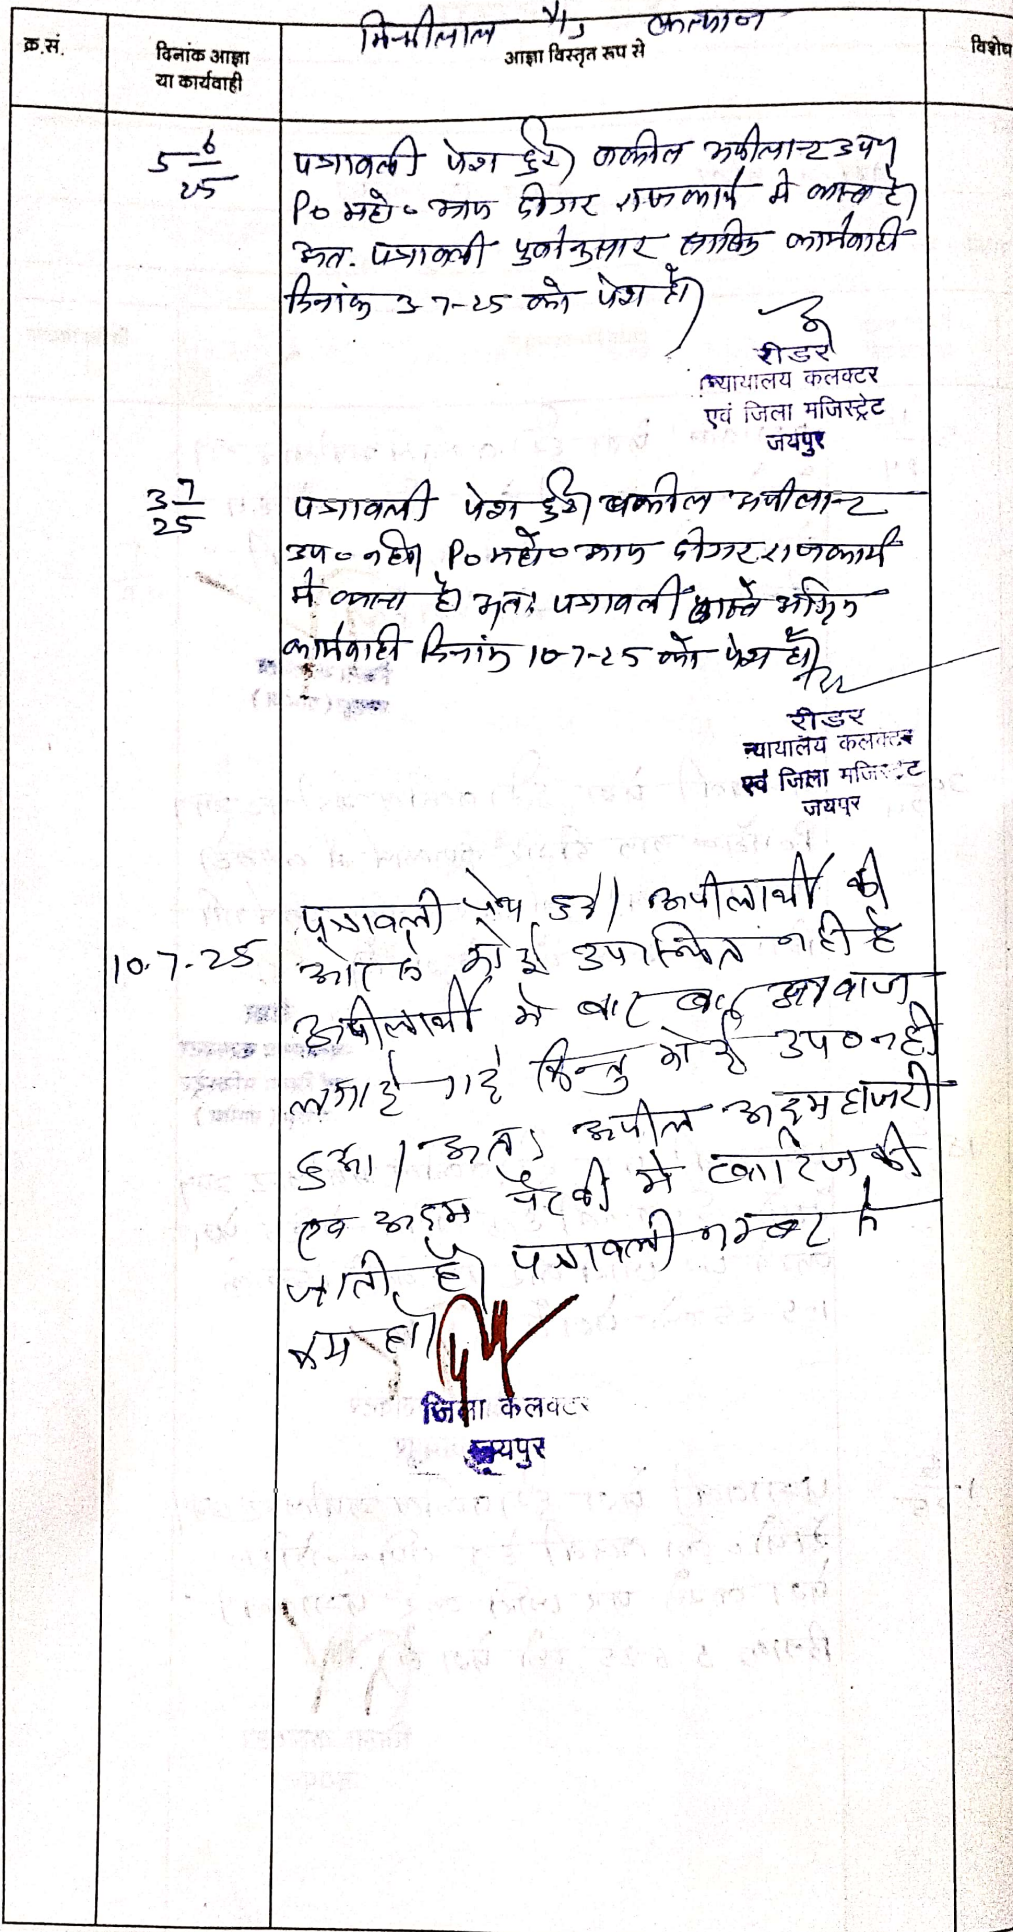 मिश्रीलाल
क्र.सं.
दिनांक आज्ञा
या कार्यवाही
आज्ञा विस्तृत रूप से
विशेष
5 6/25
पत्रावली पेश हुई। वकील अपीलान्ट उप०
P० महो० अन्य दीगर राजकार्य मे व्यस्त है।
अत. पत्रावली पूर्वानुसार कार्यवाही
दिनांक 3-7-25 को पेश हो।
रीडर
न्यायालय कलक्टर
एवं जिला मजिस्ट्रेट
जयपुर
3 7/25
पत्रावली पेश हुई। वकील अपीलान्ट
उप० नही। P० महो० अन्य दीगर राजकार्य
मे व्यस्त है। अतः पत्रावली वास्ते अग्रिम
कार्यवाही दिनांक 10-7-25 को पेश हो।
रीडर
न्यायालय कलक्टर
एवं जिला मजिस्ट्रेट
जयपुर
10.7.25
पत्रावली पेश हुई। अपीलार्थी की
ओर से कोई उपस्थित नही है
अपीलार्थी को बार बार आवाज
लगाई गई किन्तु कोई उप० नही
हुआ। अतः अपील अदम हाजरी
एवं अदम पैरवी मे खारिज की
जाती है। पत्रावली नम्बर से
कम हो।
जिला कलक्टर
जयपुर